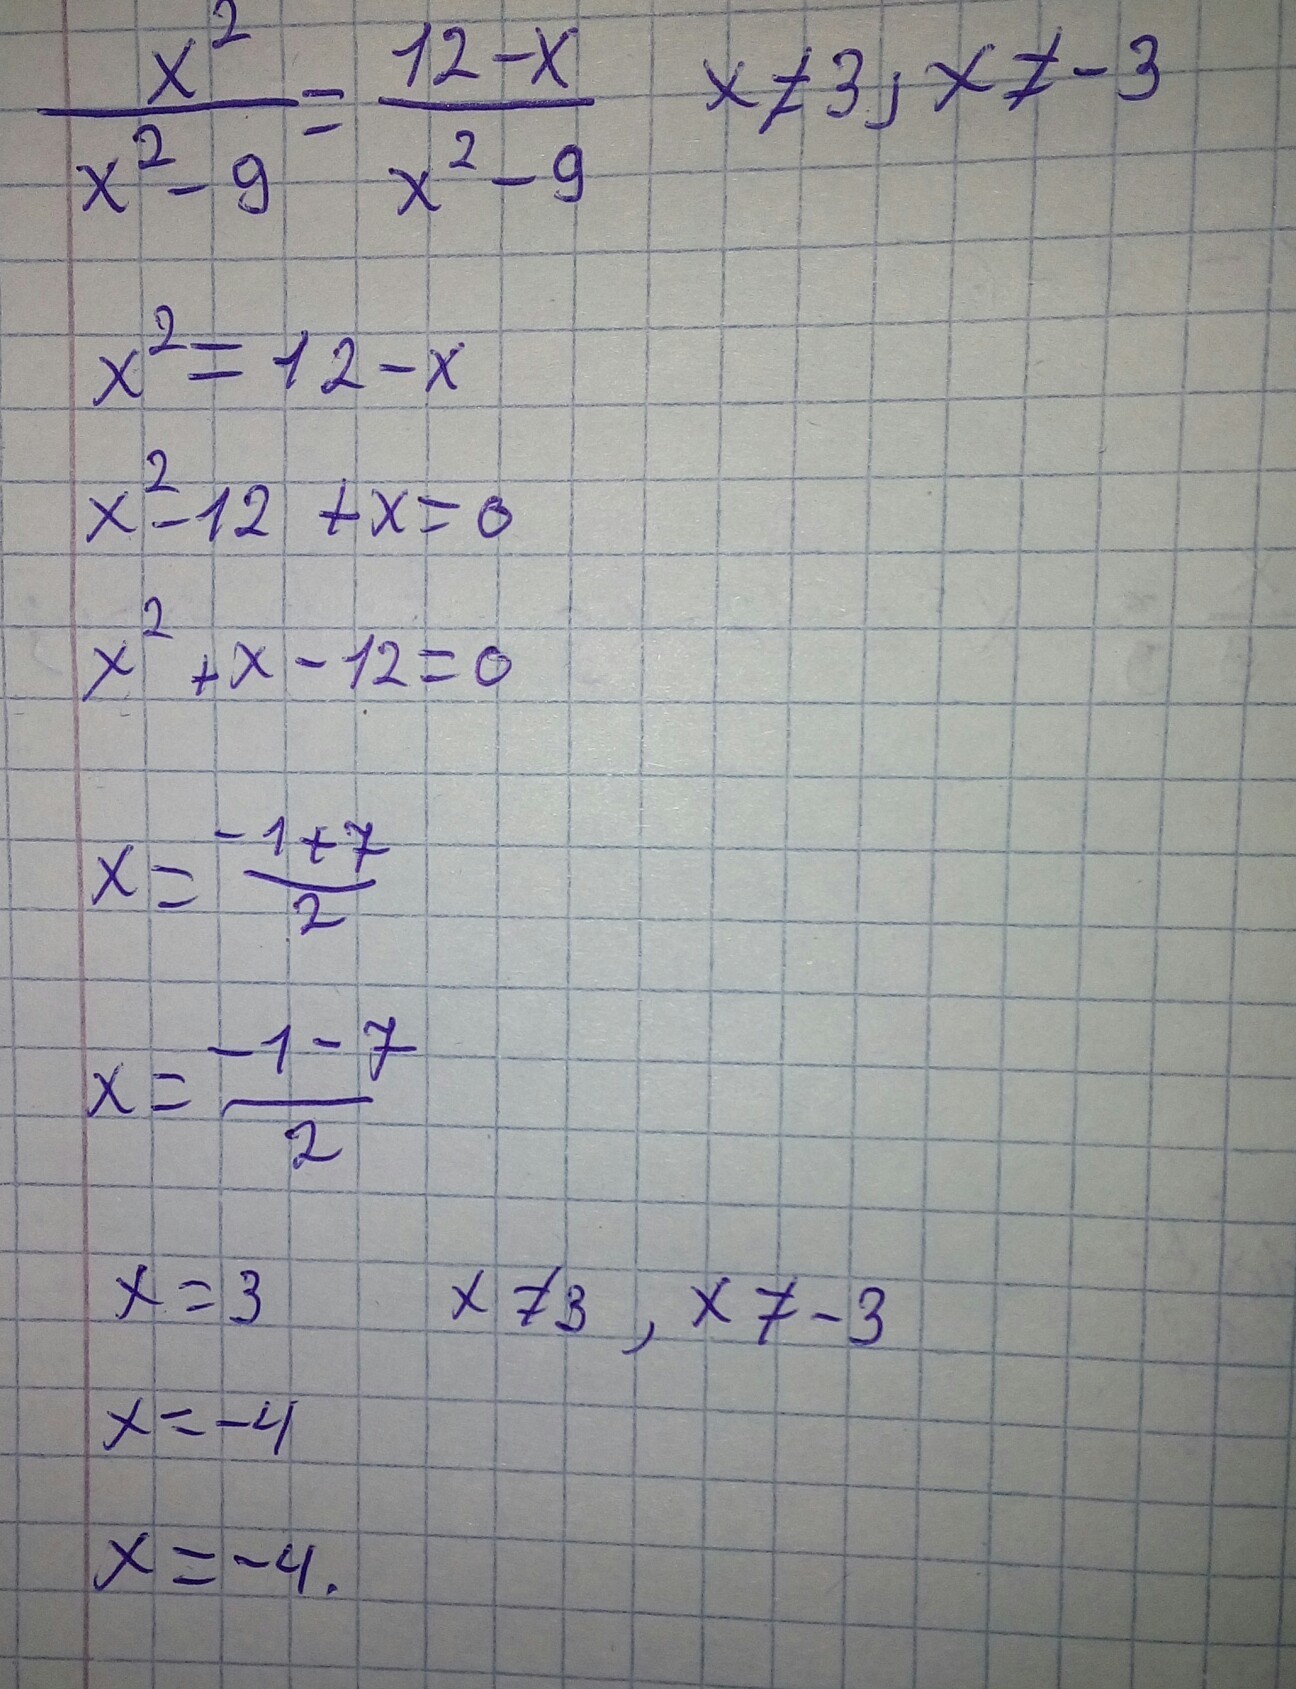 x²/(x²-9) = (12-x)/(x²-9) x≠3, x≠-3
x²=12-x
x²-12+x=0
x²+x-12=0
x=(-1+7)/2
x=(-1-7)/2
x=3 x≠3, x≠-3
x=-4
x=-4.